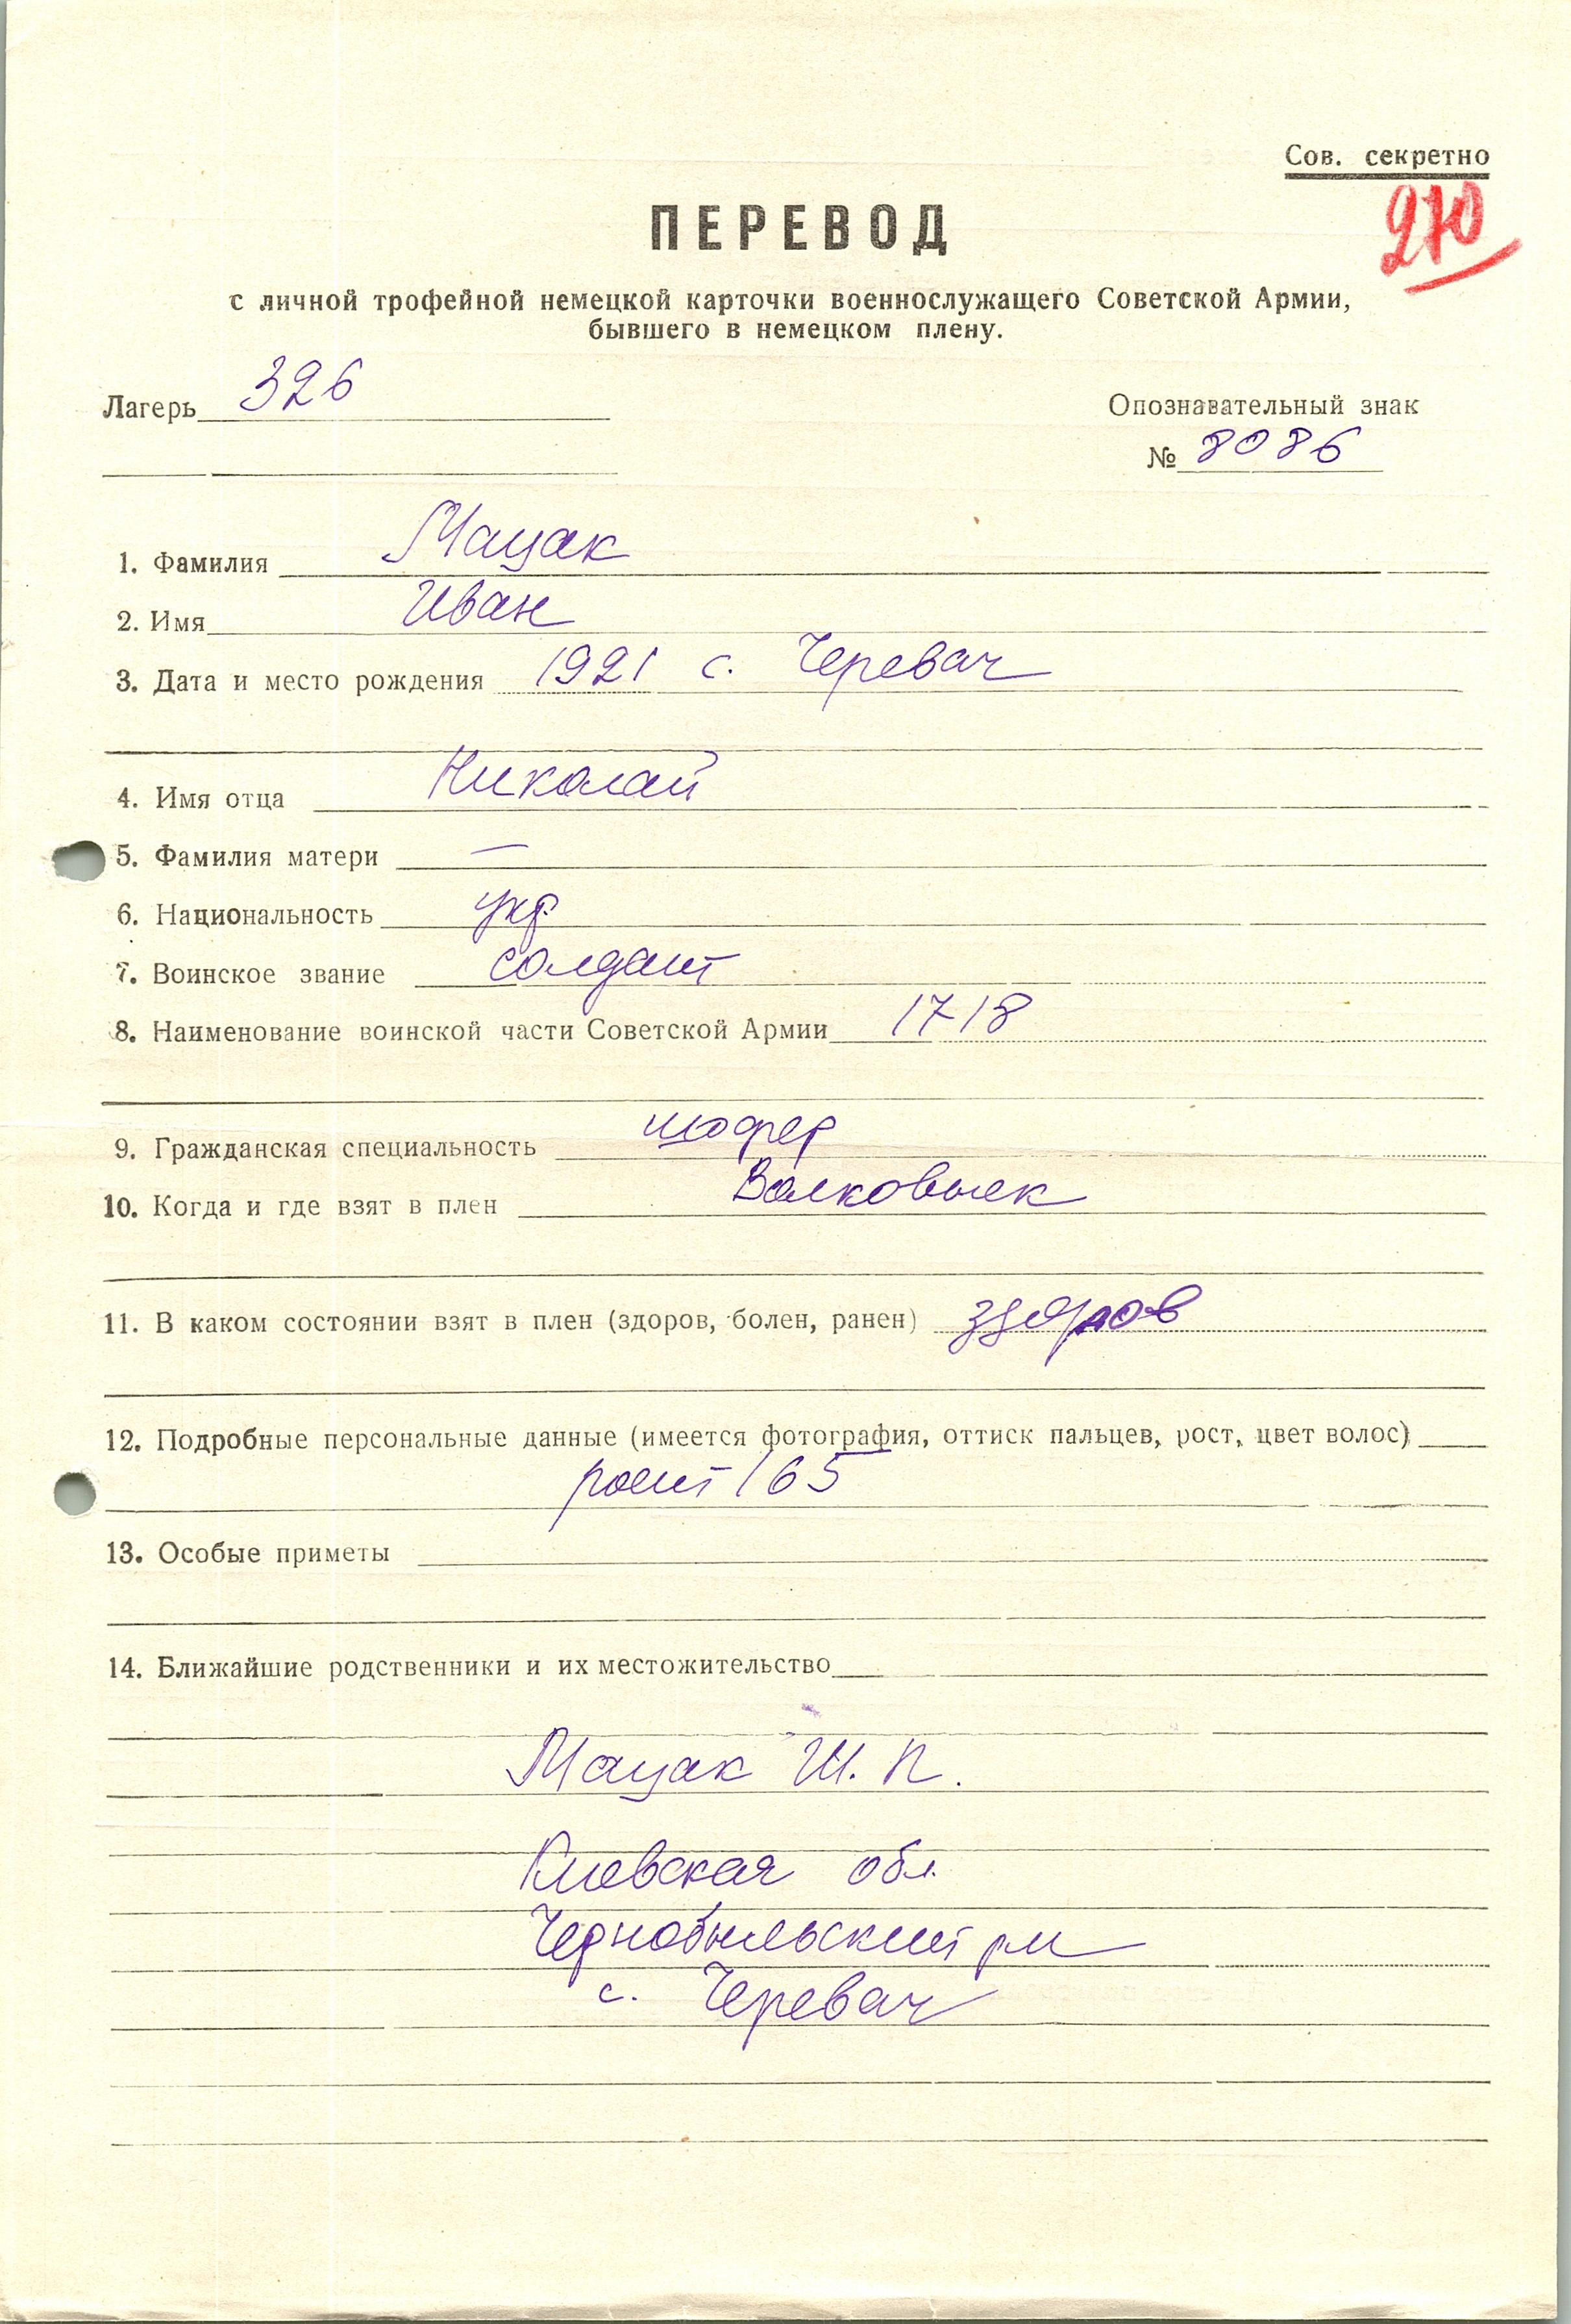 Сов. секретно
270
ПЕРЕВОД
с личной трофейной немецкой карточки военнослужащего Советской Армии,
бывшего в немецком плену.
Лагерь 326
Опознавательный знак
№ 8086
1. Фамилия Мацак
2. Имя Иван
3. Дата и место рождения 1921 с. Черевач
4. Имя отца Николай
5. Фамилия матери —
6. Национальность укр.
7. Воинское звание солдат
8. Наименование воинской части Советской Армии 1718
9. Гражданская специальность шофер
10. Когда и где взят в плен Валковыск
11. В каком состоянии взят в плен (здоров, болен, ранен) здоров
12. Подробные персональные данные (имеется фотография, оттиск пальцев, рост, цвет волос)
рост 165
13. Особые приметы
14. Ближайшие родственники и их местожительство
Мацак Ш. П.
Киевская обл.
Чернобыльский р-н
с. Черевач